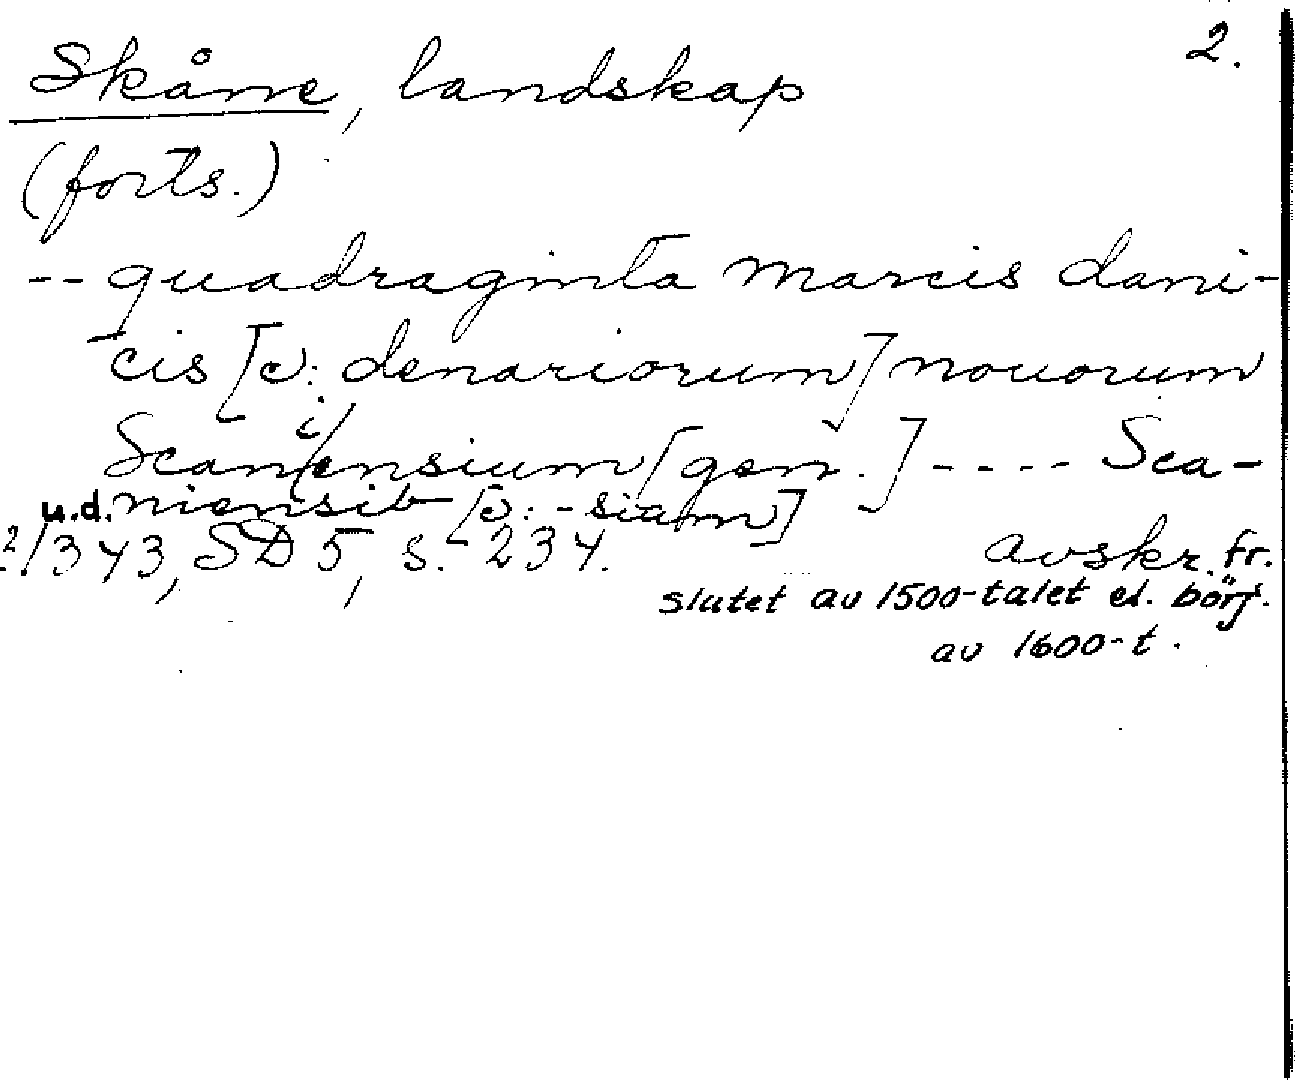 2.
Skåne, landskap
(forts.)
-- quadraginta marcis dani-
cis [ɔ: denariorum] nouorum
Scaniensium [gen.] ---- Sca-
niensib [ɔ: -sium]
u.d. /343, SD 5, s. 234. avskr. fr.
slutet av 1500-talet el. börj.
av 1600-t.